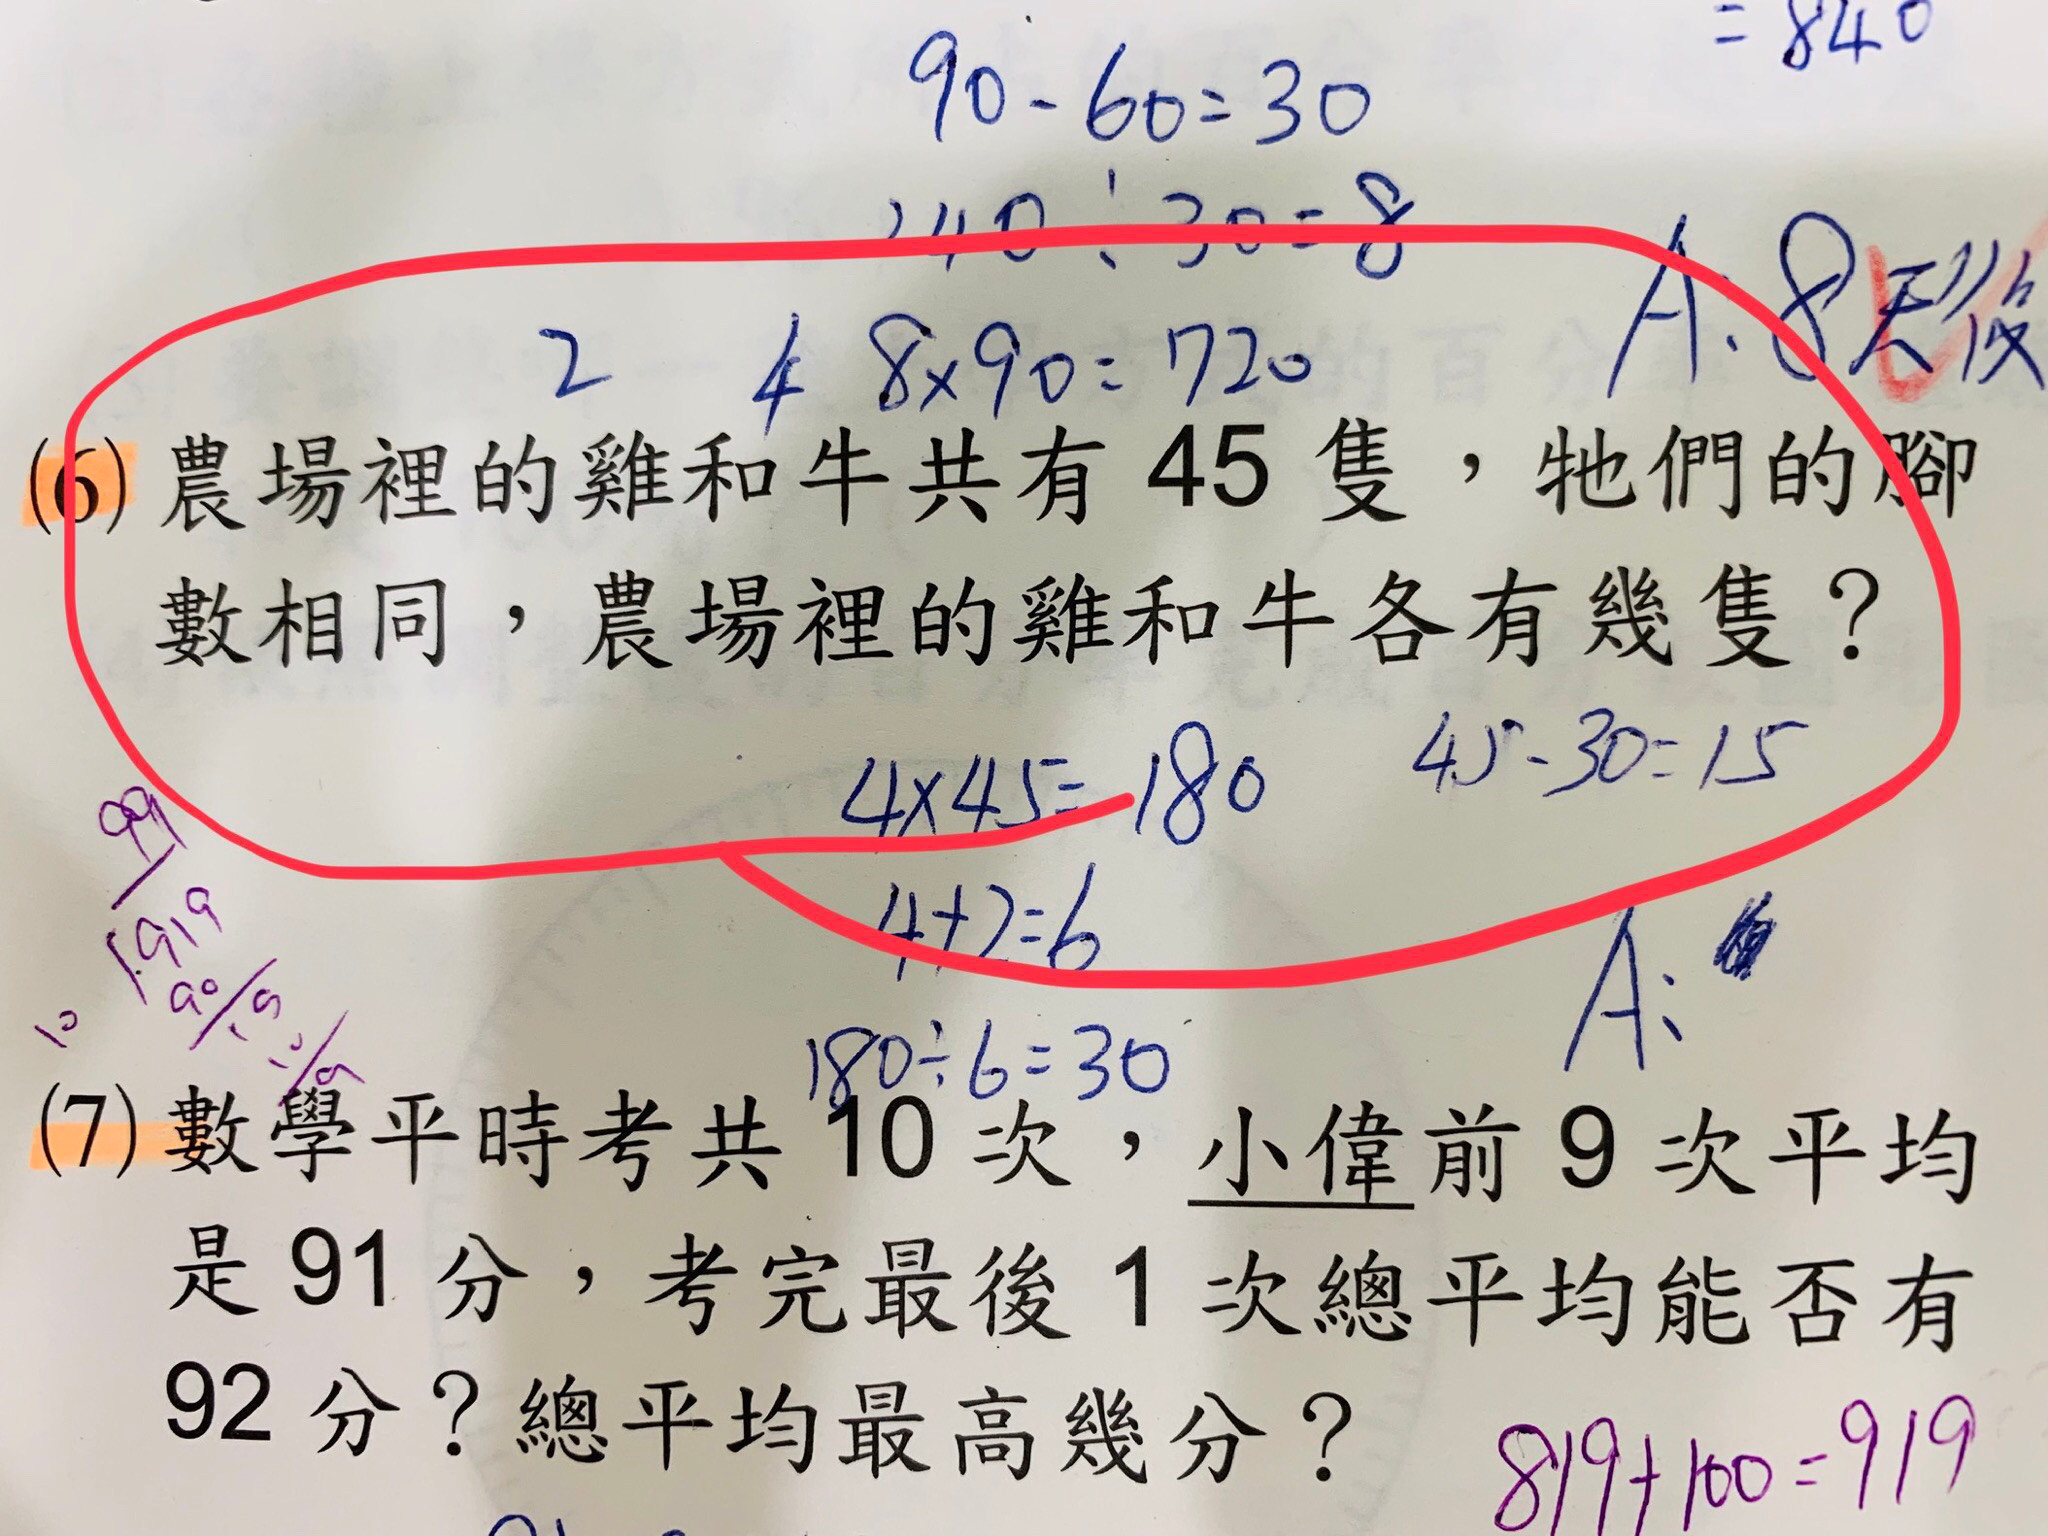 = 840
90 - 60 = 30
240 ÷ 30 = 8
A: 8天後
2 4 8×90=720
(6) 農場裡的雞和牛共有 45 隻，牠們的腳
數相同，農場裡的雞和牛各有幾隻？
4×45=180
45-30=15
4+2=6
A:
180÷6=30
99
919
90
19
10
10
9
(7) 數學平時考共 10 次，小偉前 9 次平均
是 91 分，考完最後 1 次總平均能否有
92 分？總平均最高幾分？
819+100=919